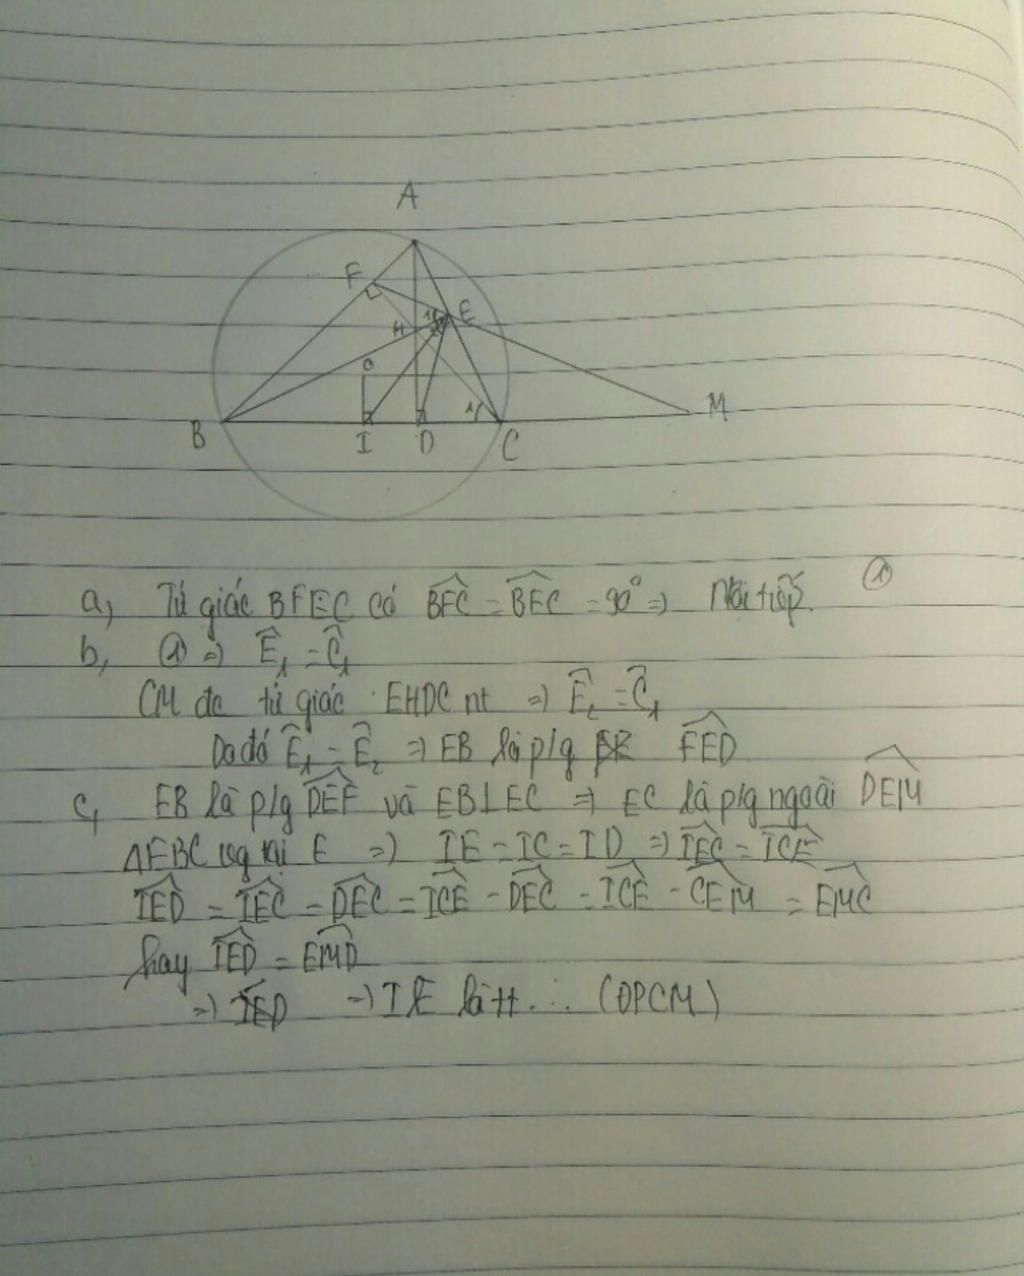 A
F
E
H
1
O
B
I
D
1
C
M
a, Tứ giác BFEC có \widehat{BFC} = \widehat{BEC} = 90° => Nội tiếp. ①
b, ① => Ê₁ = Ĉ₁
CM đc tứ giác EHDC nt => Ê₂ = Ĉ₁
Do đó Ê₁ = Ê₂ => EB là p/g \widehat{FED}
c, EB là p/g \widehat{DEF} và EB ⊥ EC => EC là p/g ngoài \widehat{DEM}
ΔEBC vg tại E => IE = IC = ID => \widehat{IEC} = \widehat{ICE}
\widehat{IED} = \widehat{IEC} - \widehat{DEC} = \widehat{ICE} - \widehat{DEC} = \widehat{ICE} - \widehat{CEM} = \widehat{EMC}
hay \widehat{IED} = \widehat{EMD}
=> => IE là tt ... (ĐPCM)